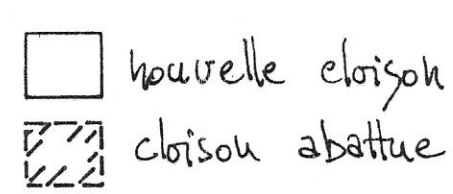 nouvelle cloison
cloison abattue